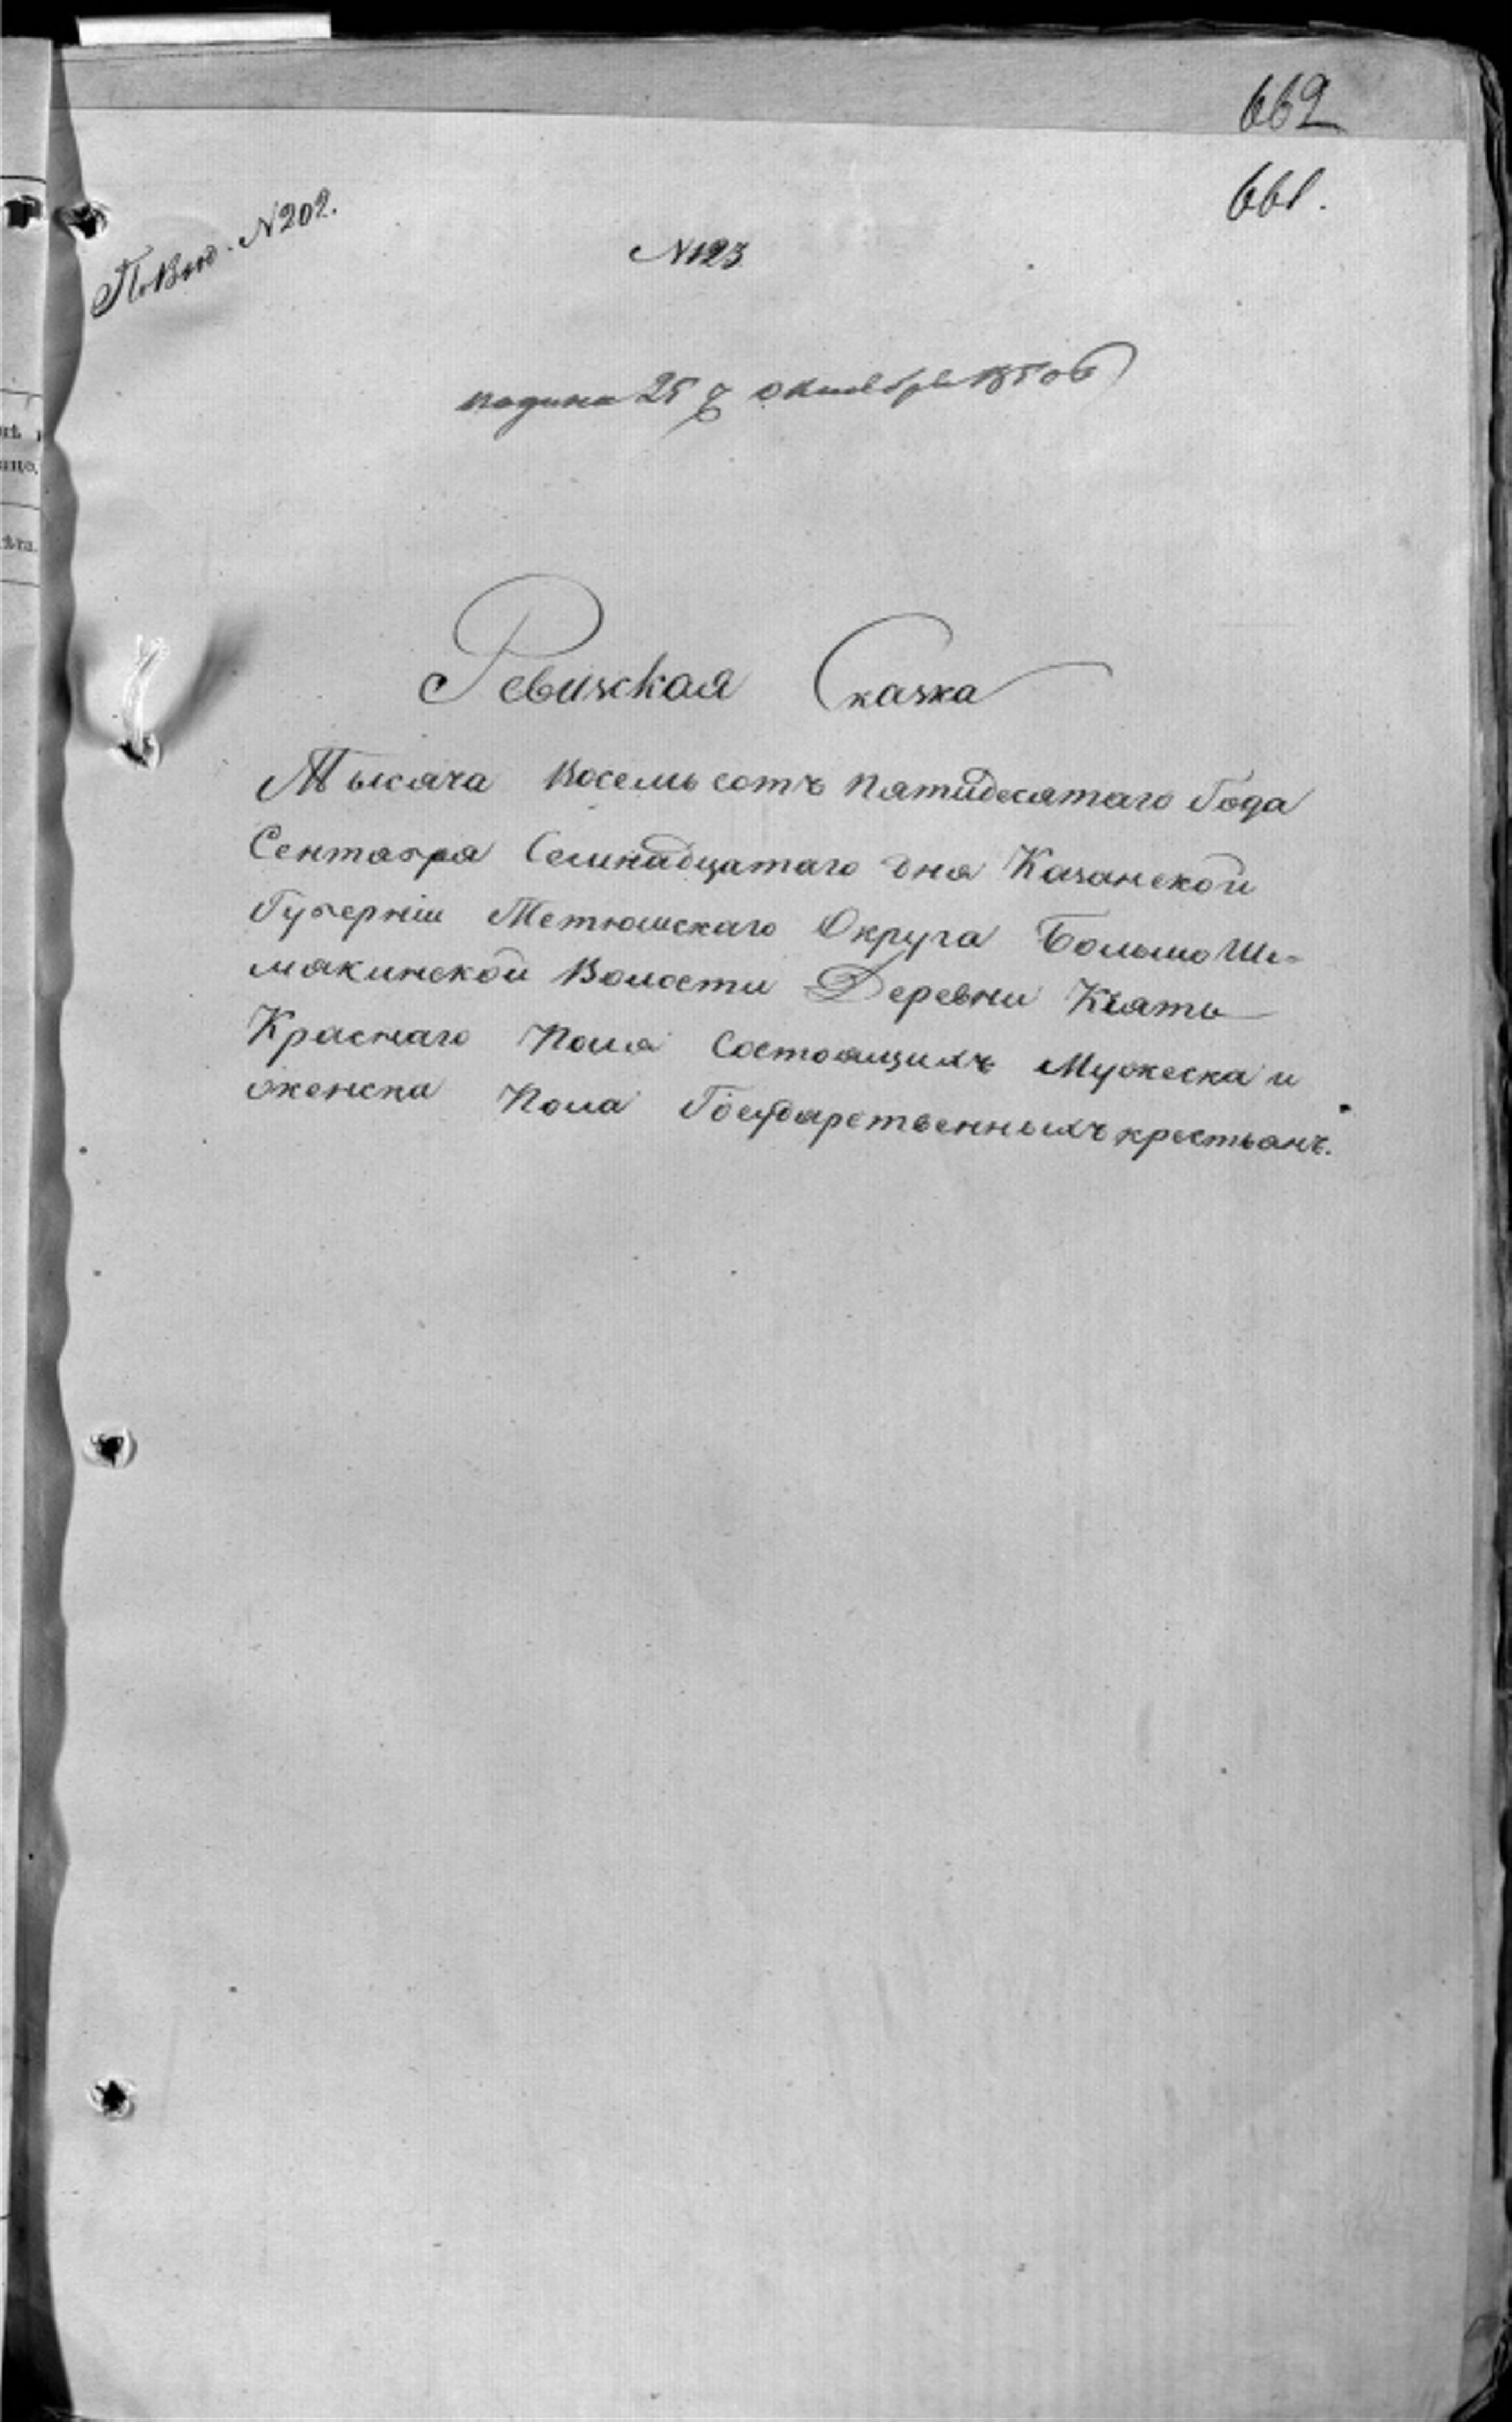 662
661.
N 202.
N 123
подана 25 октября 1850
Ревизская Сказка
Тысяча Восемь сотъ пятидесятаго Года
Сентября Семнадцатаго дня Казанской
Губерніи Тетюшскаго Округа БольшоШе-
мякинской Волости Деревни Кіять
Краснаго Поля Состоящихъ Мужеска и
женска Пола Государственныхъ крестьянъ.